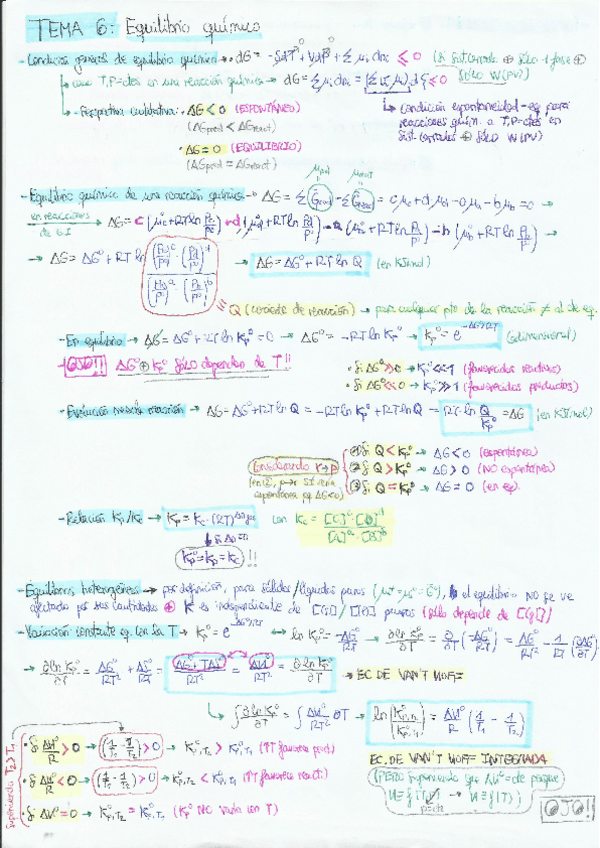 TEMA 6: Equilibrio químico
- Condición general de equilibrio químico → dG = -SdT + VdP + Σμᵢdnᵢ ≤ 0 (Si Sist. cerrado ⊕ sólo 1 fase ⊕ sólo W(PV))
caso T,P=ctes en una reacción química → dG = Σμᵢdnᵢ = (Σμᵢνᵢ)dξ ≤ 0
Condición espontaneidad-eq para reacciones quím. a T,P=ctes en sist. cerrados ⊕ sólo W(PV)
- Perspectiva cualitativa: · ΔG < 0 (ESPONTÁNEO)
(ΔGprod < ΔGreact)
· ΔG = 0 (EQUILIBRIO)
(ΔGprod = ΔGreact)
- Equilibrio químico de una reacción química → ΔG = Σ Gprod - Σ Greact = cμc + dμd - aμa - bμb = 0 →
en reacciones de G.I. ΔG = c(μc° + RT ln Pc/P°) + d(μd° + RT ln Pd/P°) - a(μa° + RT ln Pa/P°) - b(μb° + RT ln Pb/P°) →
→ ΔG = ΔG° + RT ln (Pc/P°)^c · (Pd/P°)^d / (Pa/P°)^a · (Pb/P°)^b → ΔG = ΔG° + RT ln Q (en kJ/mol)
= Q (cociente de reacción) → para cualquier pto de la reacción ≠ al de eq.
- En equilibrio → ΔG = ΔG° + RT ln Kp° = 0 → ΔG° = -RT ln Kp° → Kp° = e^(-ΔG°/RT) (adimensional)
- ¡OJO!! ΔG° ⊕ Kp° sólo dependen de T!!
· Si ΔG° >> 0 → Kp° << 1 (favorecidos reactivos)
· Si ΔG° << 0 → Kp° >> 1 (favorecidos productos)
- Evolución reacción → ΔG = ΔG° + RT ln Q = -RT ln Kp° + RT ln Q = RT ln Q/Kp° = ΔG (en kJ/mol)
Considerando r → p
① Si Q < Kp° → ΔG < 0 (espontánea)
② Si Q > Kp° → ΔG > 0 (NO espontánea)
③ Si Q = Kp° → ΔG = 0 (en eq.)
- Relación Kp/Kc → Kp = Kc · (RT)^Δn gas con Kc = [C]^c · [D]^d / [A]^a · [B]^b
si Δn=0
Kp° = Kp = Kc !!
- Equilibrios heterogéneos → por definición, para sólidos/líquidos puros (μ = μ° = G°), el equilibrio NO se ve
afectado por sus cantidades ⊕ K es independiente de [(s)]/[(l)] puros (sólo depende de [(g)])
- Variación constante eq. con la T → Kp° = e^(-ΔG°/RT) → ln Kp° = -ΔG°/RT → ∂ln Kp°/∂T = ∂/∂T(-ΔG°/RT) = ΔG°/RT² - 1/RT (∂ΔG°/∂T)
→ ∂ln Kp°/∂T = ΔG°/RT² + ΔS°/RT = ΔG° + TΔS°/RT² = ΔH°/RT² = ∂ln Kp°/∂T → EC. DE VAN'T HOFF
→ ∫∂ln Kp°/∂T = ∫ΔH°/RT² ∂T → ln(Kp,T2°/Kp,T1°) = ΔH°/R (1/T1 - 1/T2)
Suponiendo T2 > T1
· Si ΔH°/R > 0 → (1/T1 - 1/T2) > 0 → Kp,T2° > Kp,T1° (↑T favorece prod.)
· Si ΔH°/R < 0 → (1/T1 - 1/T2) > 0 → Kp,T2° < Kp,T1° (↑T favorece react.)
· Si ΔH° = 0 → Kp,T2° = Kp,T1° (Kp° NO varía con T)
EC. DE VAN'T HOFF INTEGRADA
(PERO suponiendo que ΔH° = cte porque
H ≠ f(T))
OJO!